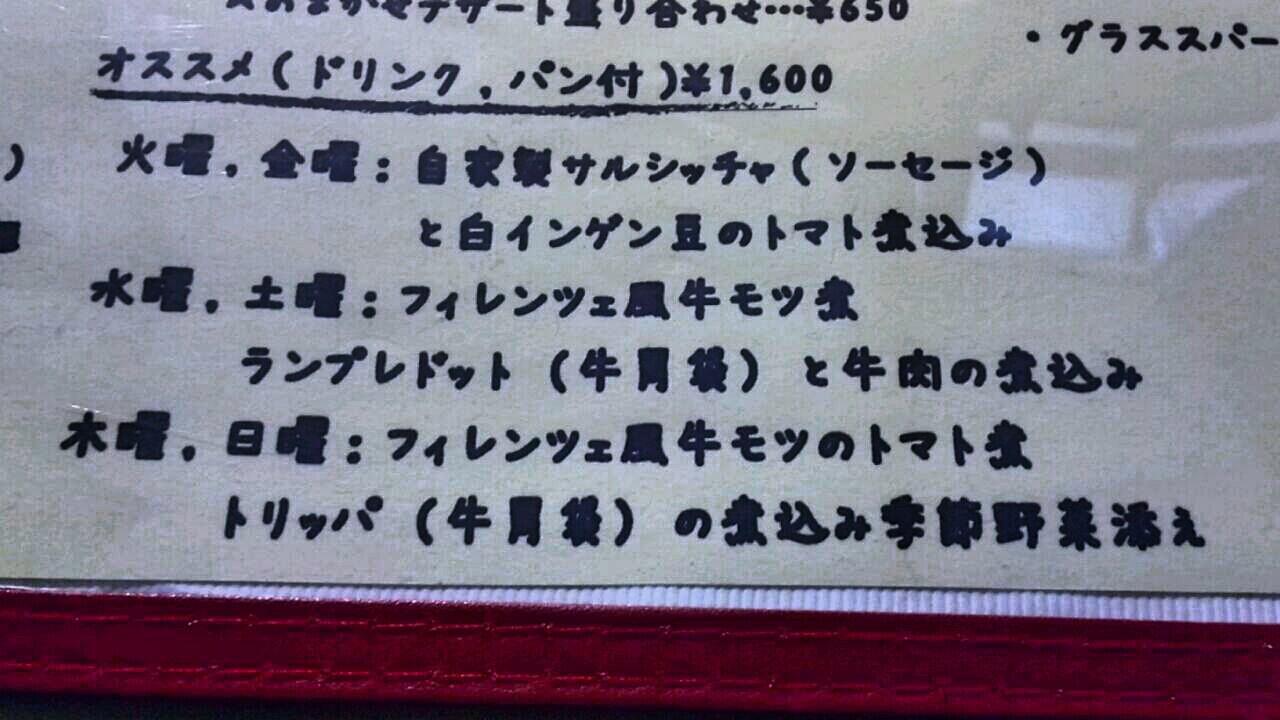 おまかせデザート盛り合わせ…¥650
・グラススパー
オススメ(ドリンク,パン付)¥1,600
火曜,金曜:自家製サルシッチャ(ソーセージ)
と白インゲン豆のトマト煮込み
水曜,土曜:フィレンツェ風牛モツ煮
ランプレドット(牛胃袋)と牛肉の煮込み
木曜,日曜:フィレンツェ風牛モツのトマト煮
トリッパ(牛胃袋)の煮込み季節野菜添え